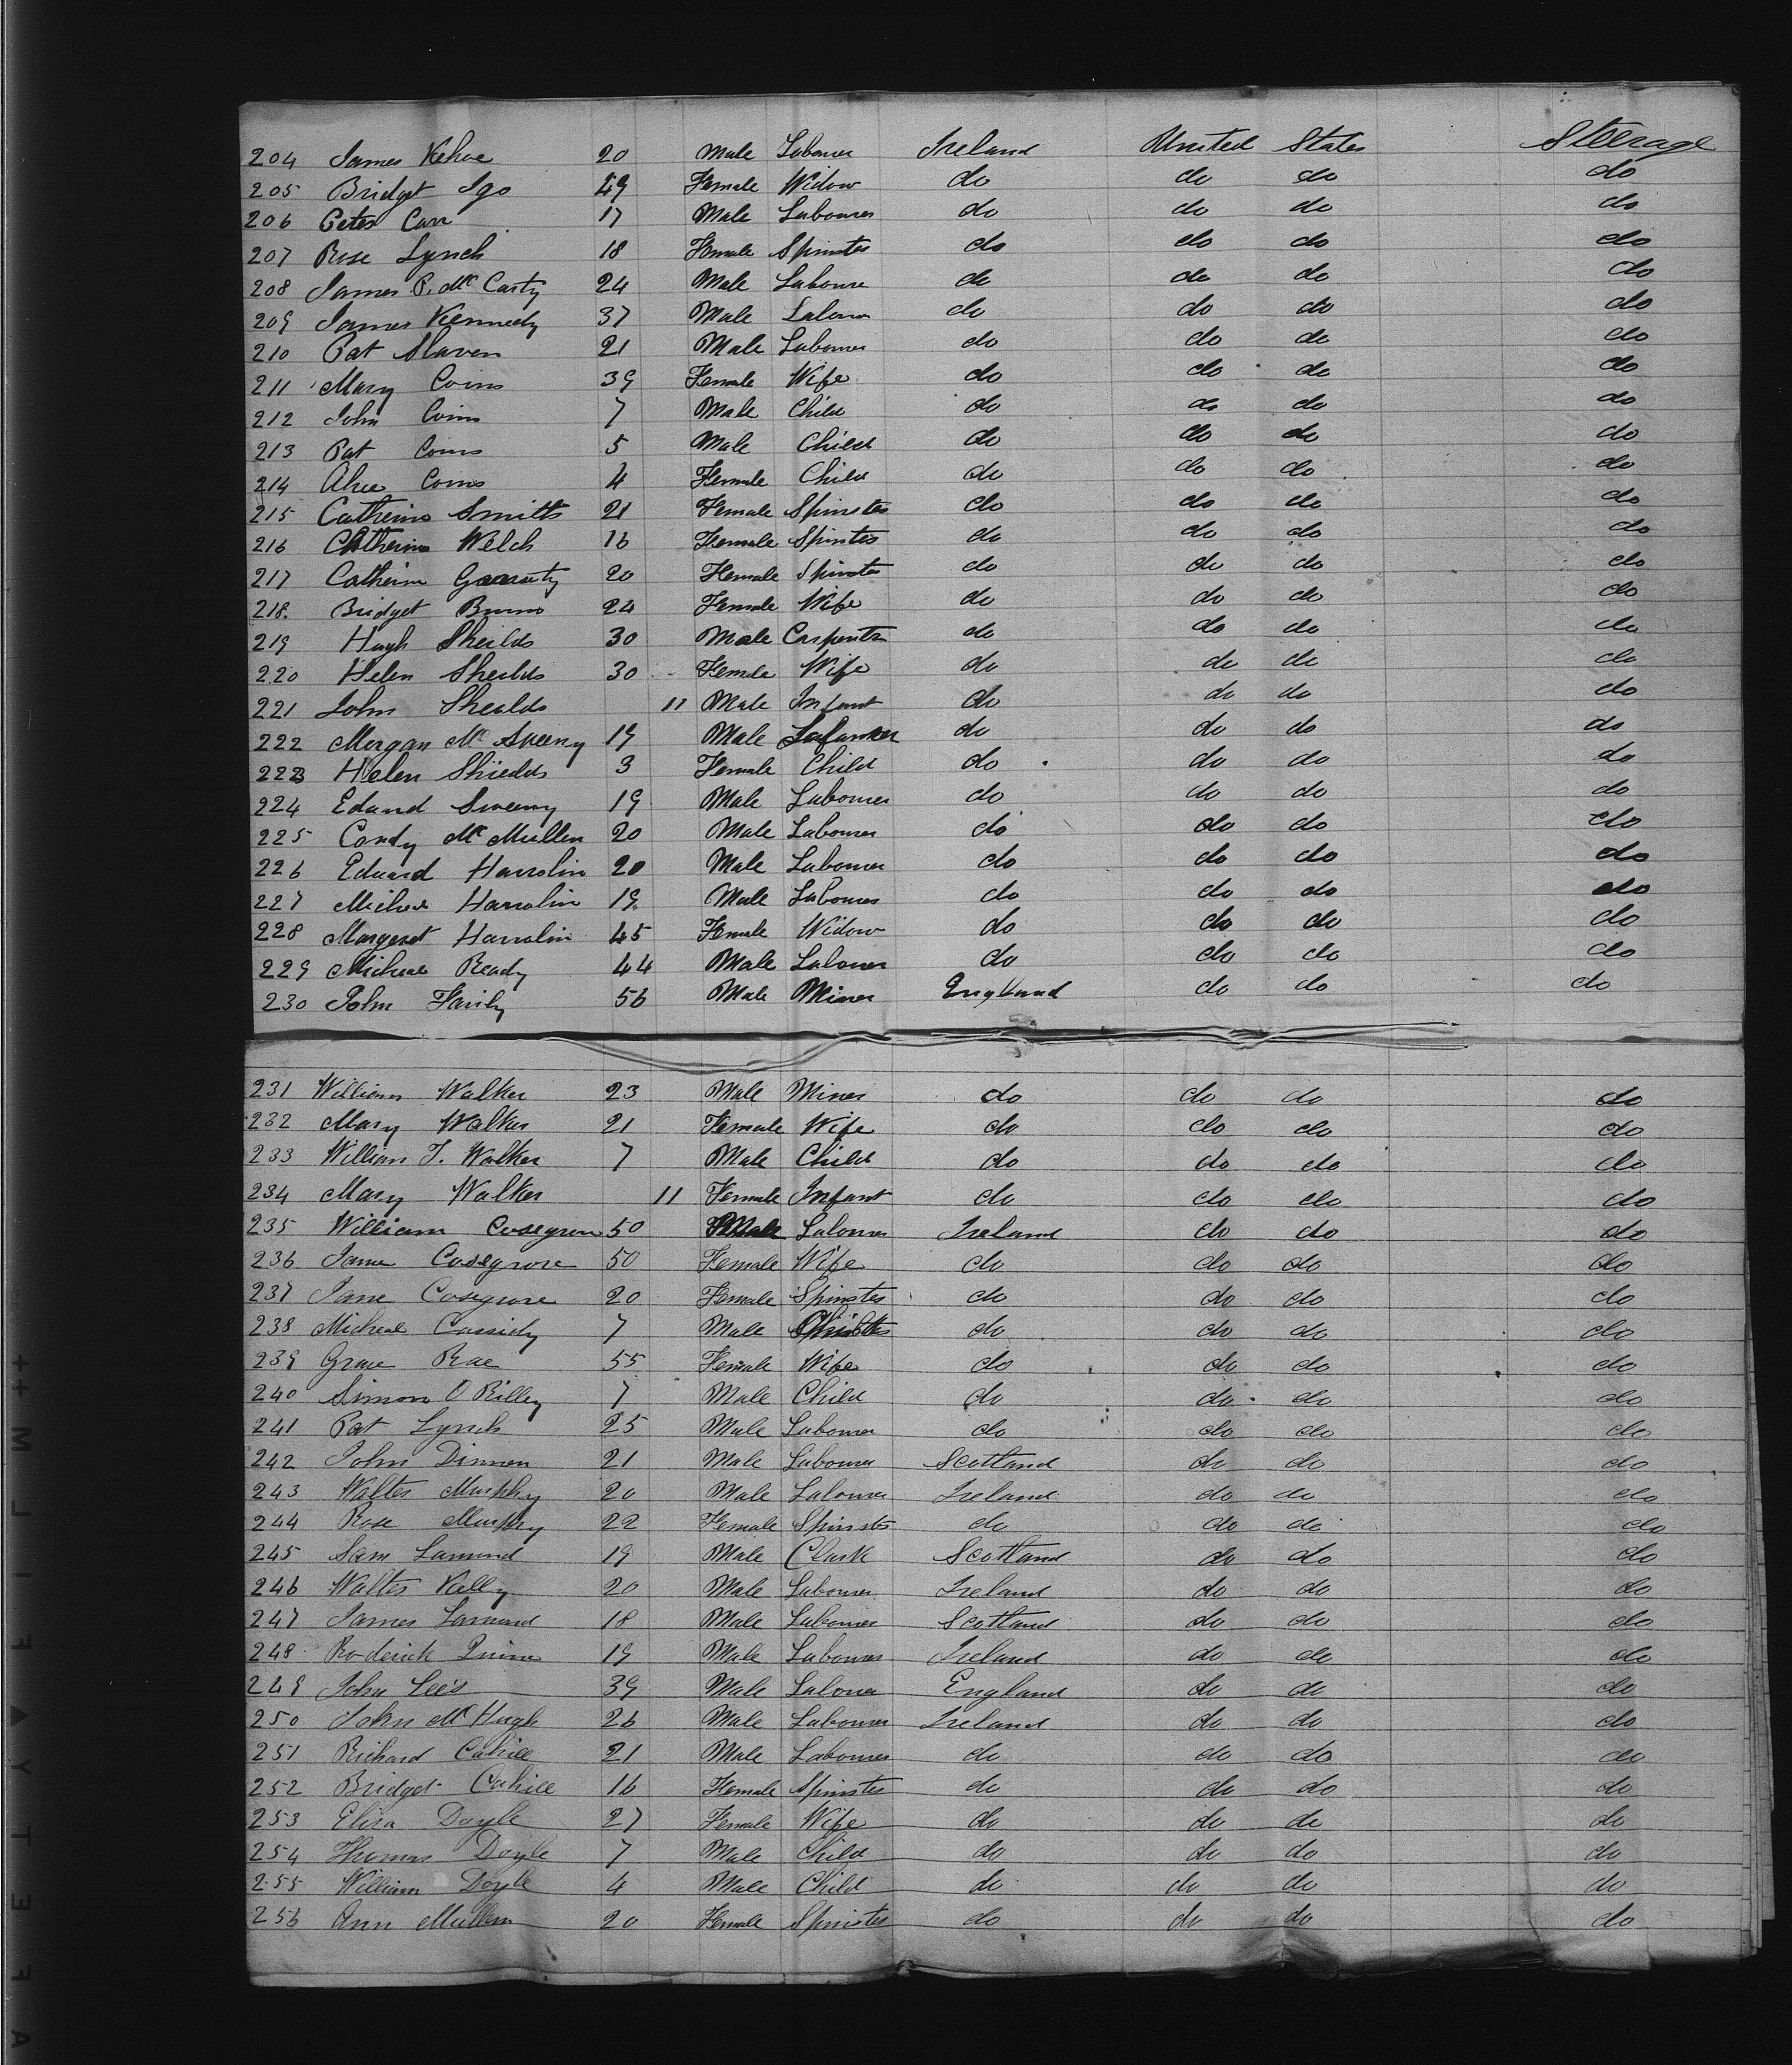 204 James Kehoe 20 Male Labourer Ireland United States Steerage
205 Bridget Igo 49 Female Widow do do do do
206 Peter Carr 17 Male Labourer do do do do
207 Rose Lynch 18 Female Spinster do do do do
208 James P. Mc Carty 24 Male Labourer do do do do
209 James Kennedy 37 Male Labourer do do do do
210 Pat Slaven 21 Male Labourer do do do do
211 Mary Coins 39 Female Wife do do do do
212 John Coins 7 Male Child do do do do
213 Pat Coins 5 Male Child do do do do
214 Alice Coins 4 Female Child do do do do
215 Catherine Smith 21 Female Spinster do do do do
216 Catherine Welch 16 Female Spinster do do do do
217 Catherine Garraty 20 Female Spinster do do do do
218. Bridget Burns 24 Female Wife do do do do
219 Hugh Sheilds 30 Male Carpenter do do do do
220 Helen Sheilds 30 Female Wife do do do do
221 John Sheilds 11 Male Infant do do do do
222 Morgan Mc Sweeny 19 Male Labourer do do do do
223 Helen Shields 3 Female Child do do do do
224 Edward Sweeny 19 Male Labourer do do do do
225 Condy Mc Mullen 20 Male Labourer do do do do
226 Edward Harrolin 20 Male Labourer do do do do
227 Micheal Harrolin 19 Male Labourer do do do do
228 Margaret Harrolin 45 Female Widow do do do do
229 Micheal Ready 44 Male Labourer do do do do
230 John 56 Male Miner England do do do
231 William Walker 23 Male Miner do do do do
232 Mary Walker 21 Female Wife do do do do
233 William T. Walker 7 Male Child do do do do
234 Mary Walker 11 Female Infant do do do do
235 William Cosegrove 50 Male Labourer Ireland do do do
236 Jane Cosegrove 50 Female Wife do do do do
237 Jane Cosegrove 20 Female Spinster do do do do
238 Micheal Cassidy 7 Male do do do do
239 Grace Rae 55 Female Wife do do do do
240 Simon O Rilley 7 Male Child do do do do
241 Pat Lynch 25 Male Labourer do do do do
242 John Dinnen 21 Male Labourer Scotland do do do
243 Walter Murphy 20 Male Labourer Ireland do do do
244 Rose Murphy 22 Female Spinster do do do do
245 Sam Lamond 19 Male Clark Scotland do do do
246 Walter Kelly 20 Male Labourer Ireland do do do
247 James Lamond 18 Male Labourer Scotland do do do
248 Roderick Quinn 19 Male Labourer Ireland do do do
249 John Lee's 39 Male Labourer England do do do
250 John Mc Hugh 26 Male Labourer Ireland do do do
251 Richard Cahill 21 Male Labourer do do do do
252 Bridget Cahill 16 Female Spinster do do do do
253 Eliza Doyle 27 Female Wife do do do do
254 Thomas Doyle 7 Male Child do do do do
255 William Doyle 4 Male Child do do do do
256 Ann Mullen 20 Female Spinster do do do do